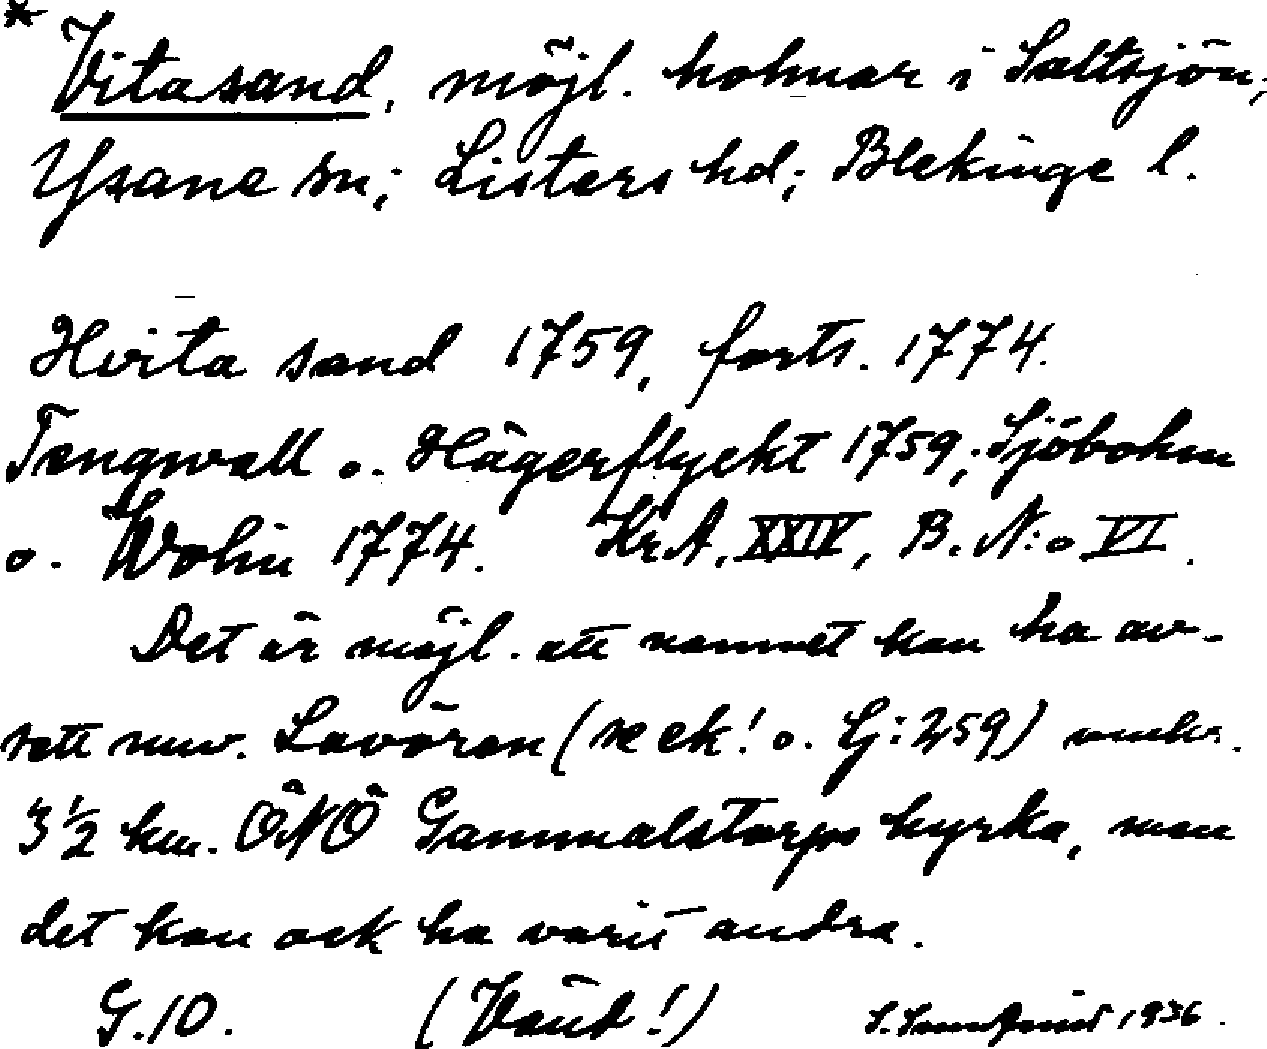 * Vitasand, möjl. holmar i Saltsjön,
Ysane sn; Listers hd; Blekinge l.
Hvita sand 1759, forts. 1774.
Tengwall o. Hägerflyckt 1759; Sjöbohm
o. Wohin 1774. Kr.A. XXIV, B. N:o VI.
Det är möjl. att namnet kan ha av-
sett nuv. Lavören (se ek! o. Lj:259) omkr.
3 1/2 km. ÖNÖ Gammalstorps kyrka, men
det kan ock ha varit andra.
G.10. (Vänd!) 1936.